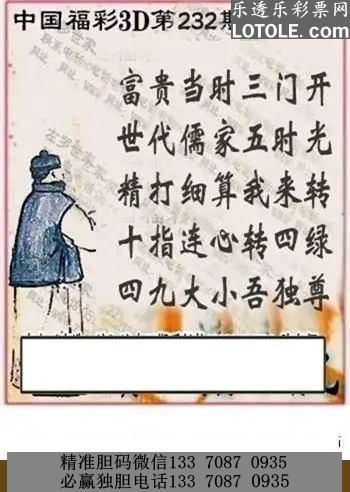 乐透乐彩票网
LOTOLE.COM
中国福彩3D第232期
富贵当时三门开
世代儒家五时光
精打细算我来转
十指连心转四绿
四九大小吾独尊
精准胆码微信133 7087 0935
必赢独胆电话133 7087 0935